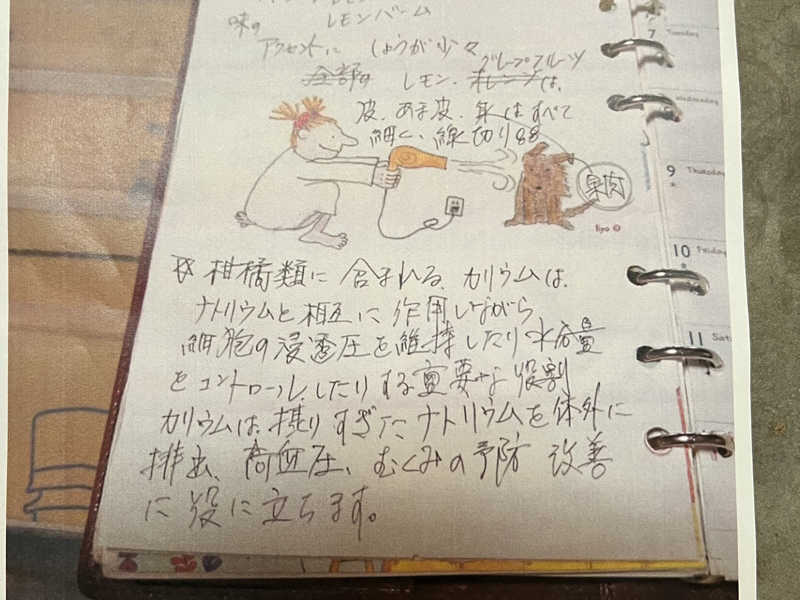 味の レモンバーム
アクセントに しょうが少々
グレープフルーツ
全部の レモン、オレンジは、
皮、あま皮、実はすべて
細く、線切り
果肉
柑橘類に含まれる、カリウムは、
ナトリウムと相互に作用しながら
細胞の浸透圧を維持したり水分量
をコントロールしたりする重要な役割
カリウムは、摂りすぎたナトリウムを体外に
排出、高血圧、むくみの予防 改善
に役に立ちます。
7 Tuesday
Wednesday
9 Thursday
10 Friday
11 Sat